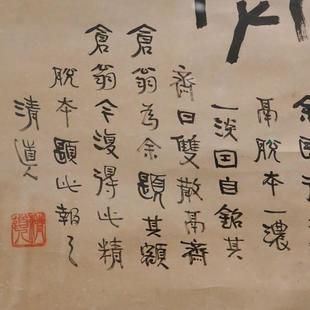 鬲脫本一濃
一淡因自銘其
齋曰雙散鬲齋
倉翁為余題其額
倉翁今復得此精
脫本題此報之
清道人